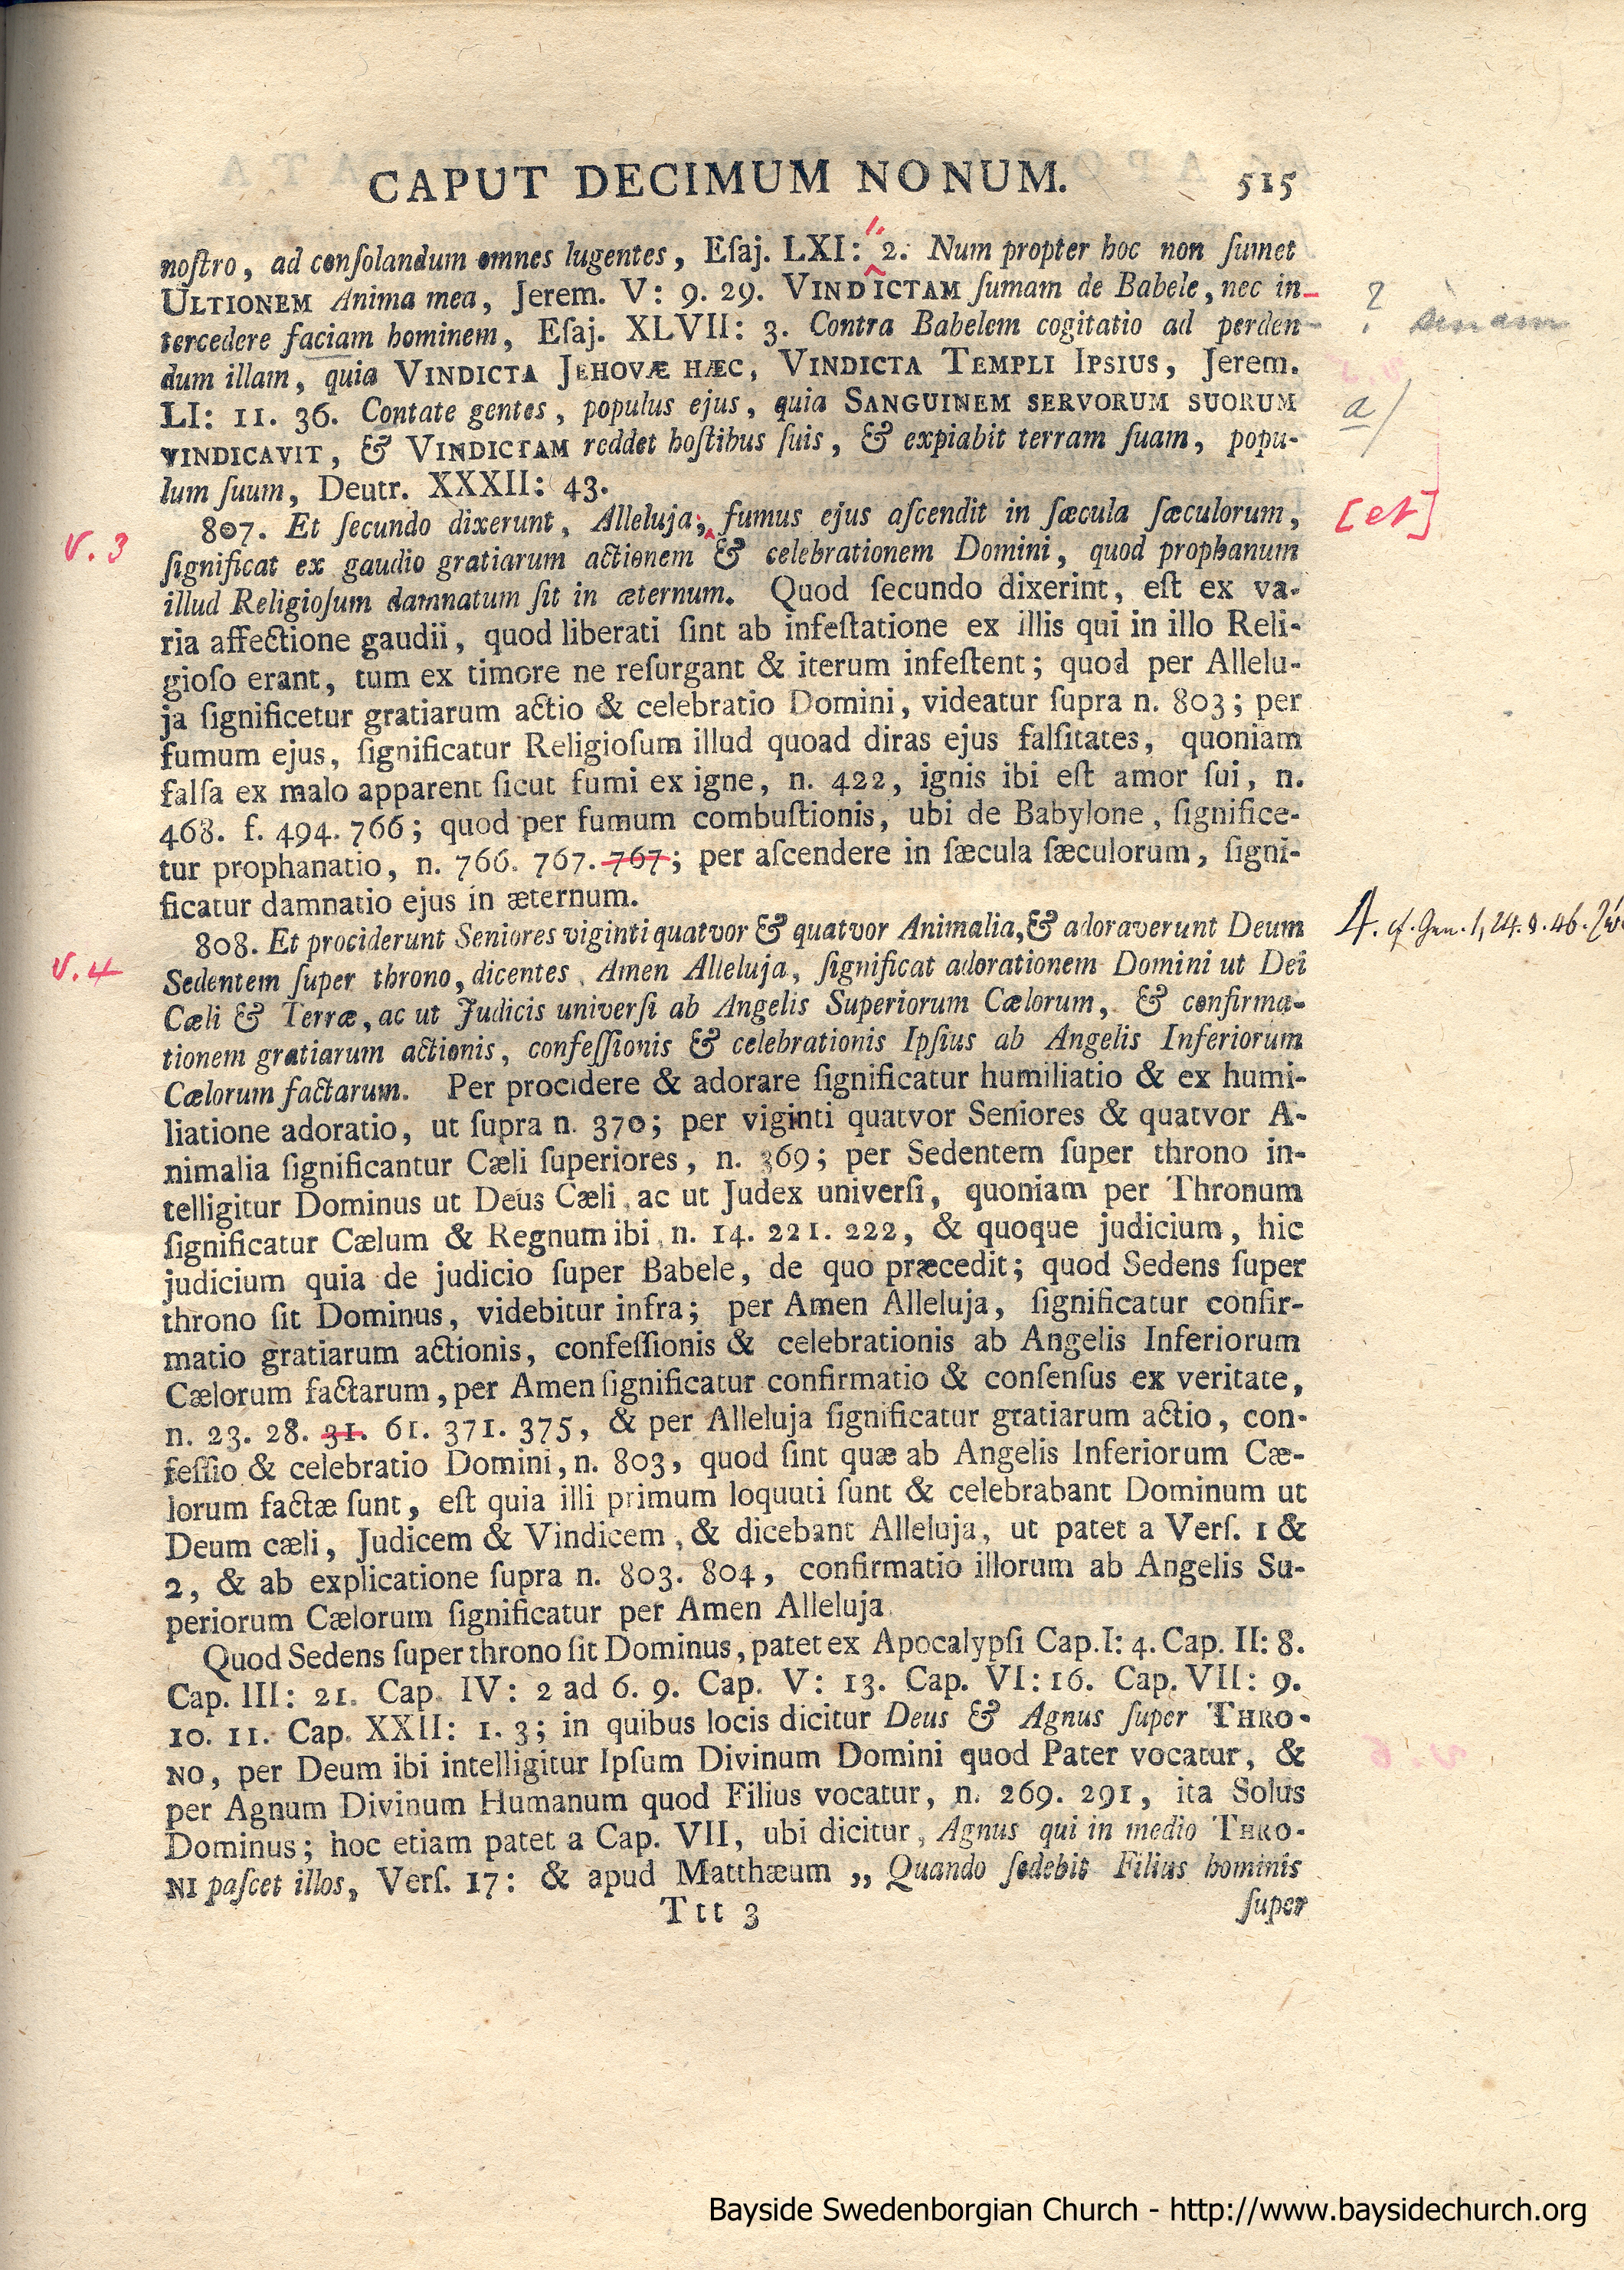 CAPUT DECIMUM NONUM. 515
noſtro, ad conſolandum omnes lugentes, Eſaj. LXI: 2. Num propter hoc non ſumet
ULTIONEM Anima mea, Jerem. V: 9. 29. VINDICTAM ſumam de Babele, nec in-
tercedere faciam hominem, Eſaj. XLVII: 3. Contra Babelem cogitatio ad perden-
?
dum illam, quia VINDICTA JEHOVÆ HÆC, VINDICTA TEMPLI IPSIUS, Jerem.
LI: 11. 36. Contate gentes, populus ejus, quia SANGUINEM SERVORUM SUORUM
a/
VINDICAVIT, & VINDICTAM reddet hoſtibus ſuis, & expiabit terram ſuam, popu-
lum ſuum, Deutr. XXXII: 43.
v. 3
807. Et ſecundo dixerunt, Alleluja, fumus ejus aſcendit in ſæcula ſæculorum,
[et]
ſignificat ex gaudio gratiarum actionem & celebrationem Domini, quod prophanum
illud Religioſum damnatum ſit in æternum. Quod ſecundo dixerint, eſt ex va-
ria affectione gaudii, quod liberati ſint ab infeſtatione ex illis qui in illo Reli-
gioſo erant, tum ex timore ne reſurgant & iterum infeſtent; quod per Allelu-
ja ſignificetur gratiarum actio & celebratio Domini, videatur ſupra n. 803; per
fumum ejus, ſignificatur Religioſum illud quoad diras ejus falſitates, quoniam
falſa ex malo apparent ſicut fumi ex igne, n. 422, ignis ibi eſt amor ſui, n.
468. f. 494. 766; quod per fumum combuſtionis, ubi de Babylone, ſignifice-
tur prophanatio, n. 766. 767. 767; per aſcendere in ſæcula ſæculorum, ſigni-
ficatur damnatio ejus in æternum.
v. 4
808. Et prociderunt Seniores viginti quatvor & quatvor Animalia, & adoraverunt Deum
4. cf. Gen. 1, 24. 8. 46.
Sedentem ſuper throno, dicentes, Amen Alleluja, ſignificat adorationem Domini ut Dei
Cæli & Terræ, ac ut Judicis univerſi ab Angelis Superiorum Cælorum, & confirma-
tionem gratiarum actionis, confeſſionis & celebrationis Ipſius ab Angelis Inferiorum
Cælorum factarum. Per procidere & adorare ſignificatur humiliatio & ex humi-
liatione adoratio, ut ſupra n. 370; per viginti quatvor Seniores & quatvor A-
nimalia ſignificantur Cæli ſuperiores, n. 369; per Sedentem ſuper throno in-
telligitur Dominus ut Deus Cæli, ac ut Judex univerſi, quoniam per Thronum
ſignificatur Cælum & Regnum ibi, n. 14. 221. 222, & quoque judicium, hic
judicium quia de judicio ſuper Babele, de quo præcedit; quod Sedens ſuper
throno ſit Dominus, videbitur infra; per Amen Alleluja, ſignificatur confir-
matio gratiarum actionis, confeſſionis & celebrationis ab Angelis Inferiorum
Cælorum factarum, per Amen ſignificatur confirmatio & conſenſus ex veritate,
n. 23. 28. 31. 61. 371. 375, & per Alleluja ſignificatur gratiarum actio, con-
feſſio & celebratio Domini, n. 803, quod ſint quæ ab Angelis Inferiorum Cæ-
lorum factæ ſunt, eſt quia illi primum loquuti ſunt & celebrabant Dominum ut
Deum cæli, Judicem & Vindicem, & dicebant Alleluja, ut patet a Verſ. 1 &
2, & ab explicatione ſupra n. 803. 804, confirmatio illorum ab Angelis Su-
periorum Cælorum ſignificatur per Amen Alleluja.
Quod Sedens ſuper throno ſit Dominus, patet ex Apocalypſi Cap. I: 4. Cap. II: 8.
Cap. III: 21. Cap. IV: 2 ad 6. 9. Cap. V: 13. Cap. VI: 16. Cap. VII: 9.
10. 11. Cap. XXII: 1. 3; in quibus locis dicitur Deus & Agnus ſuper THRO-
NO, per Deum ibi intelligitur Ipſum Divinum Domini quod Pater vocatur, &
per Agnum Divinum Humanum quod Filius vocatur, n. 269. 291, ita Solus
Dominus; hoc etiam patet a Cap. VII, ubi dicitur, Agnus qui in medio THRO-
NI paſcet illos, Verſ. 17: & apud Matthæum „ Quando ſedebit Filius hominis
Ttt 3 ſuper
Bayside Swedenborgian Church - http://www.baysidechurch.org